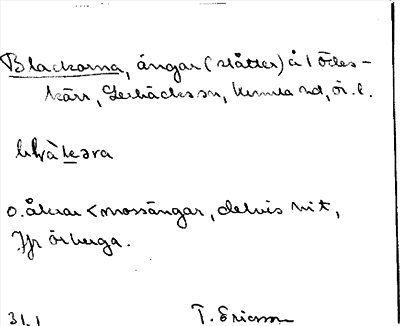 Blackorna, ängar (slåtter) å 1 Ödes-
kärr, Lerbäcks sn, Kumla hd, Ör. l.
o. åkrar < mossängar, delvis nit,
Jfr örberga.
31.1
T. Ericsson